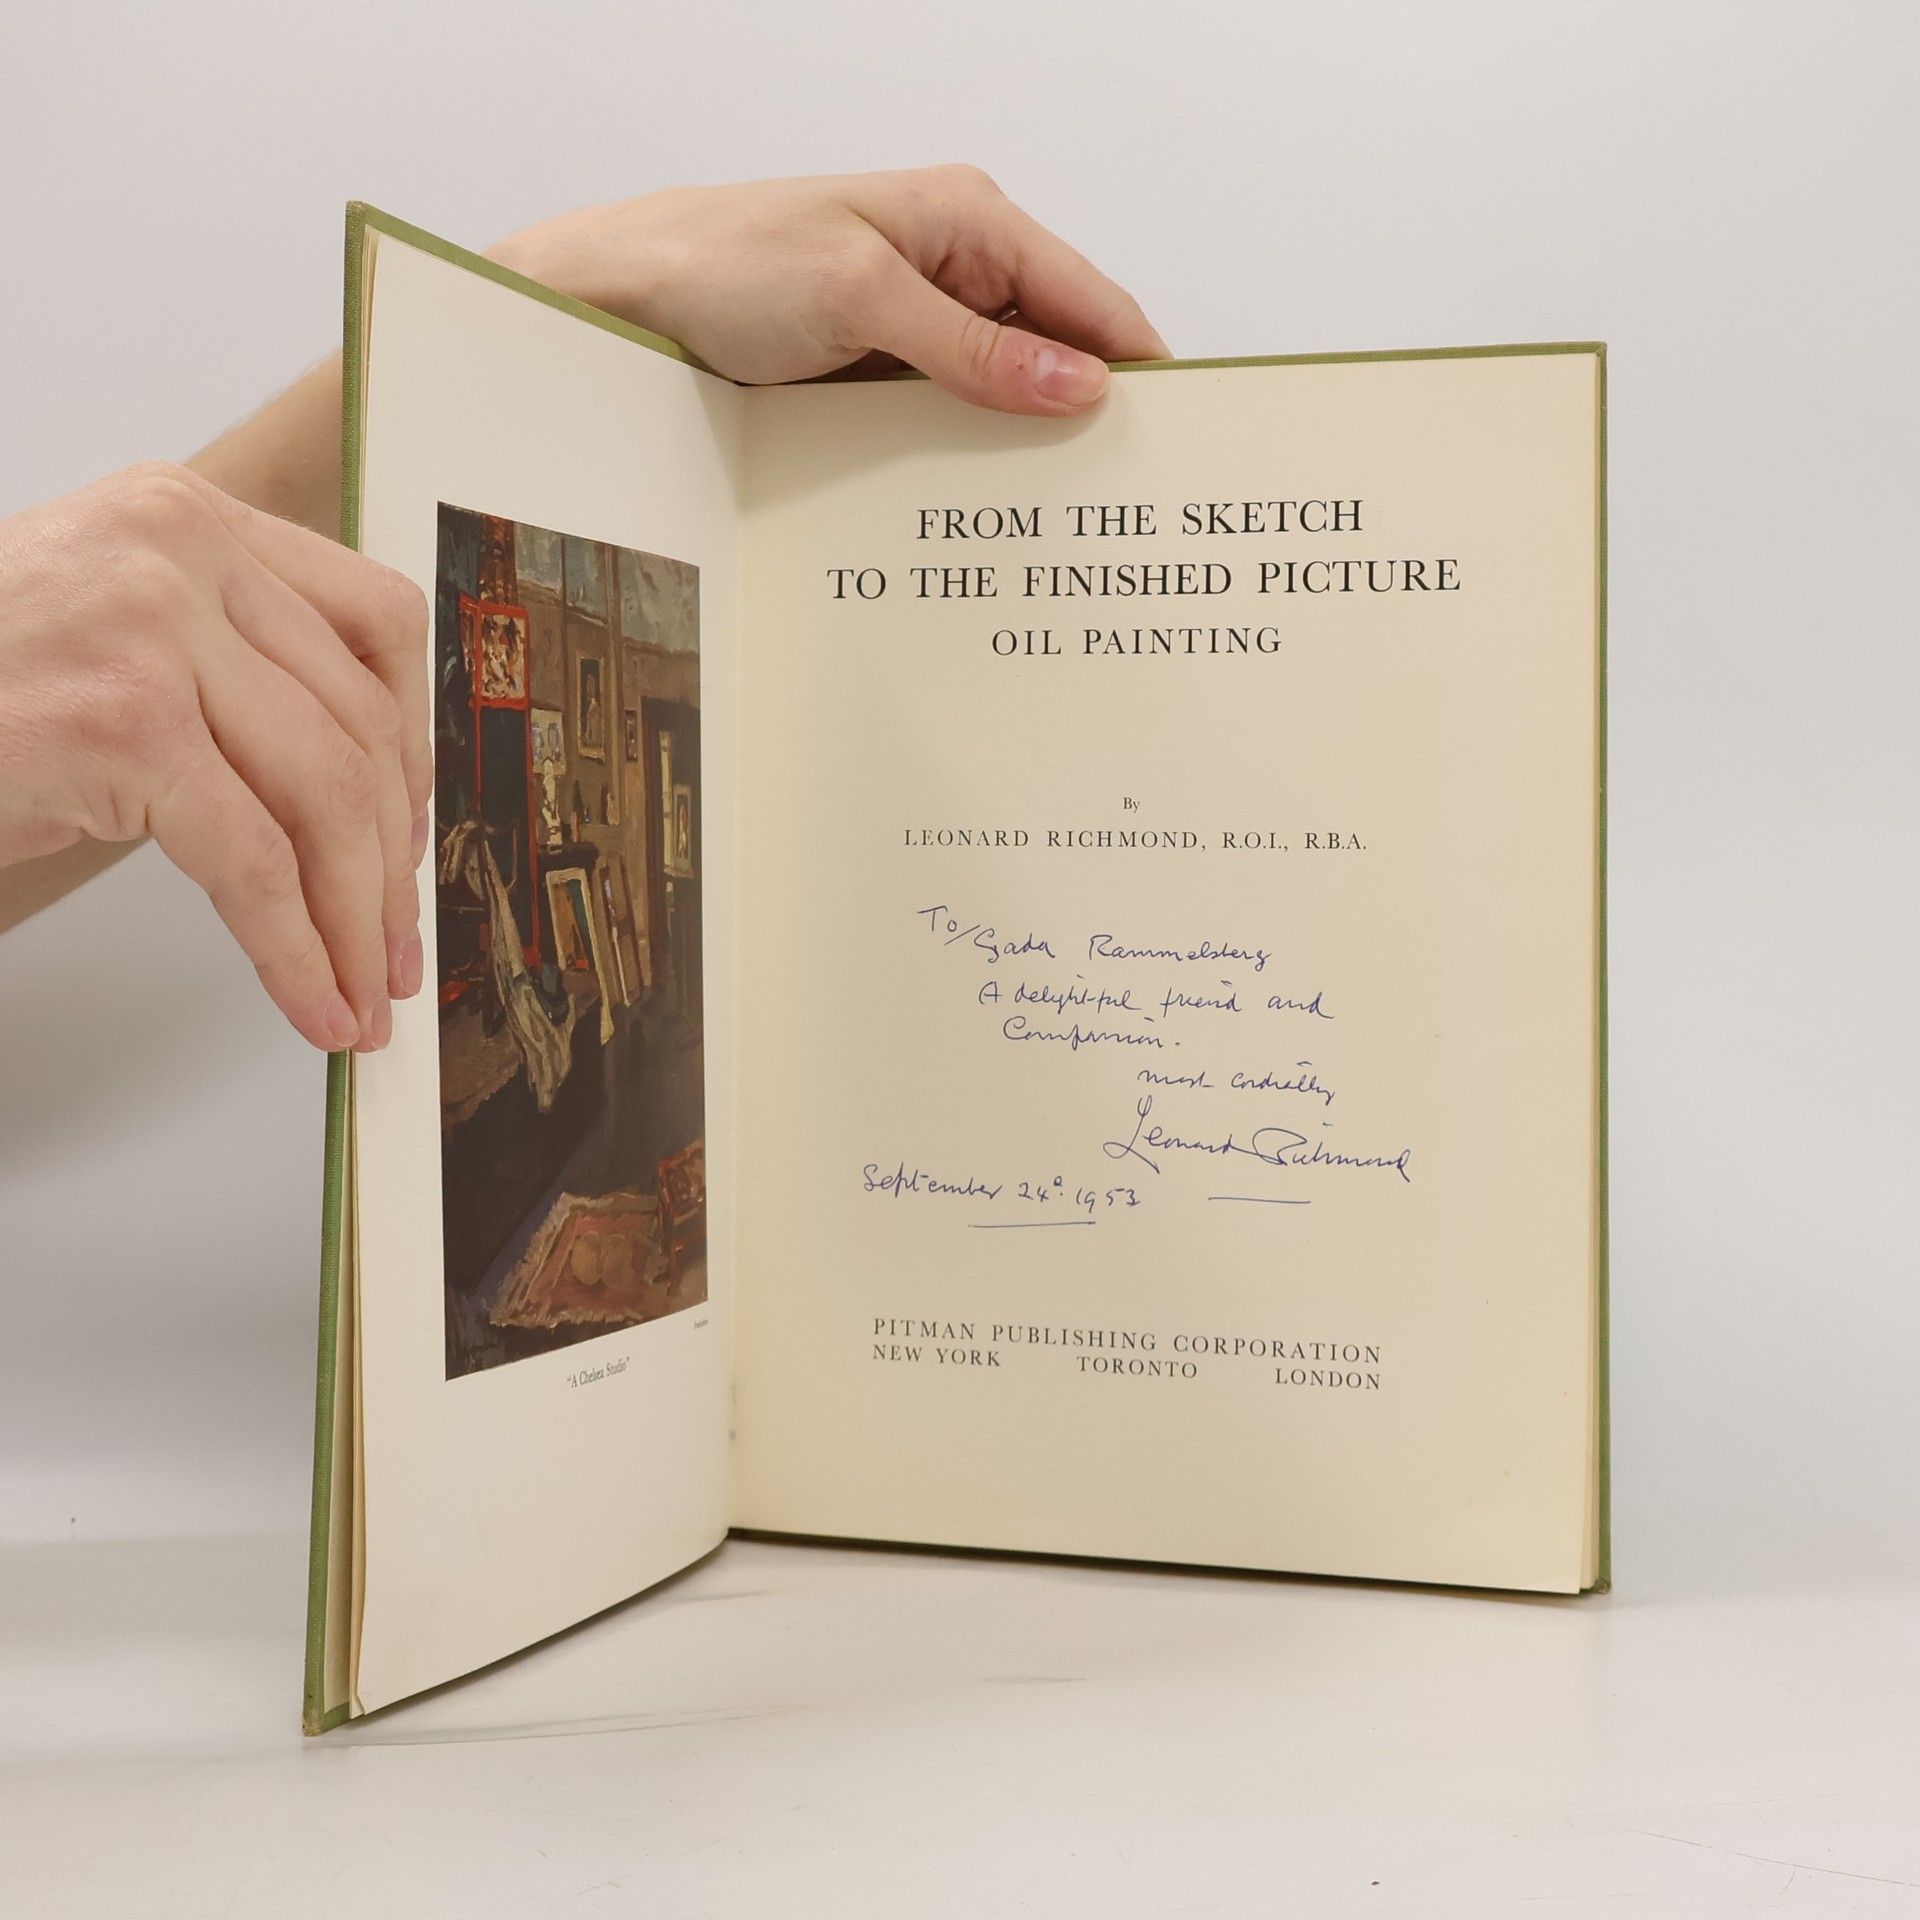 "A Chelsea Studio"
FROM THE SKETCH
TO THE FINISHED PICTURE
OIL PAINTING
By
LEONARD RICHMOND, R.O.I., R.B.A.
To/ Gada Rammelsberg
A delightful friend and
Companion.
most cordially
Leonard Richmond
September 24th. 1953
PITMAN PUBLISHING CORPORATION
NEW YORK TORONTO LONDON